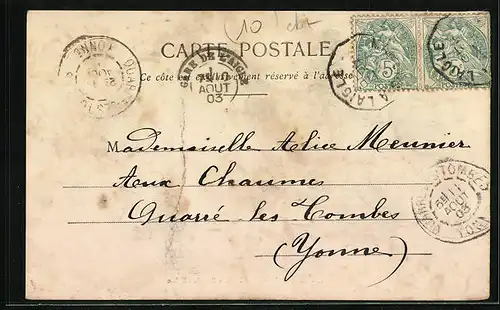 10
CARTE POSTALE
Ce côté est exclusivement réservé à l'adresse
GARE DE L'AIGLE
AOUT
03
5
A LAIGLE
LAIGLE
YONNE
Mademoiselle Alice Meunier
Aux Chaumes
Quarré les Tombes
(Yonne)
11
AOUT
03